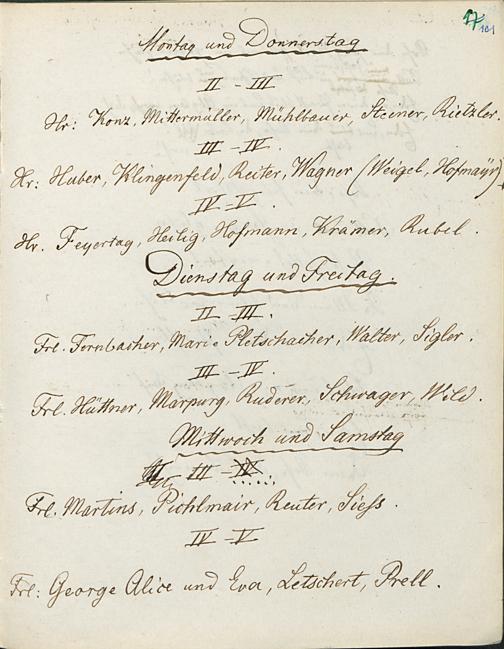 Montag und Donnerstag
II - III
Hr: Konz, Mittermüller, Mühlbauer, Steiner, Rietzler.
III - IV.
Hr: Huber, Klingenfeld, Reiter, Wagner (Weigel, Hofmayr)
IV - V.
Hr. Feyertag, Heilig, Hofmann, Krämer, Rubel.
Dienstag und Freitag.
II - III.
Frl. Fernbacher, Marie Pletschacher, Walter, Sigler.
III - IV.
Frl. Hüttner, Marpurg, Ruderer, Schwager, Wild.
Mittwoch und Samstag
III - IV
Frl. Martins, Pichlmair, Reuter, Siess.
IV - V
Frl: George Alice und Eva, Letschert, Prell.